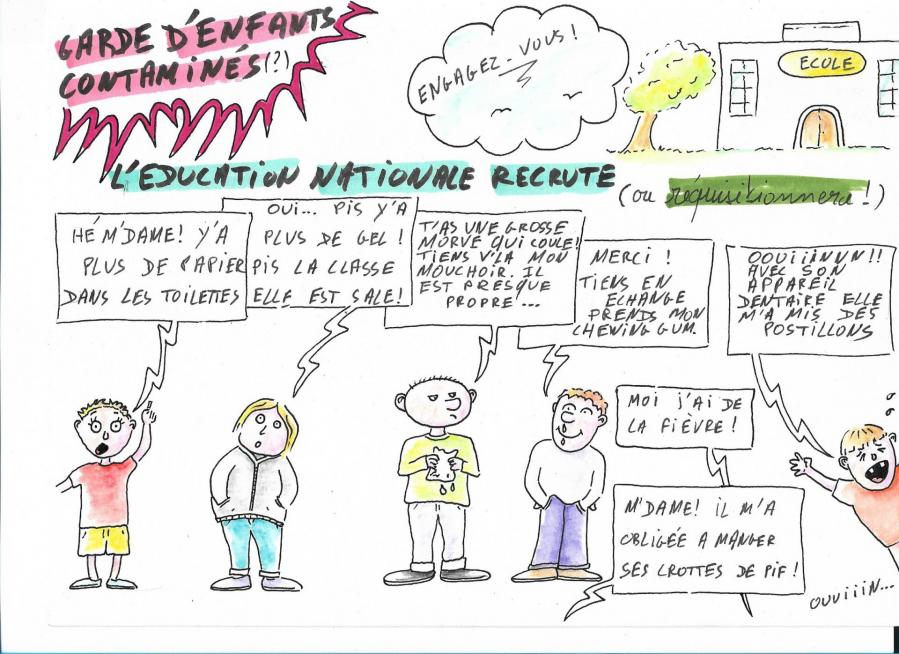 GARDE D'ENFANTS
CONTAMINÉS (?)
ENGAGEZ-VOUS !
ECOLE
L'EDUCATION NATIONALE RECRUTE
(ou réquisitionnera !)
HÉ M'DAME! Y'A
PLUS DE PAPIER
DANS LES TOILETTES
OUI... PIS Y'A
PLUS DE GEL !
PIS LA CLASSE
ELLE EST SALE!
T'AS UNE GROSSE
MORVE QUI COULE!
TIENS V'LA MON
MOUCHOIR. IL
EST PRESQUE
PROPRE...
MERCI !
TIENS EN
ECHANGE
PRENDS MON
CHEWING GUM.
OOUiiiNNN!!
AVEC SON
APPAREIL
DENTAIRE ELLE
M'A MIS DES
POSTILLONS
MOI J'AI DE
LA FIÈVRE !
M'DAME! IL M'A
OBLIGÉE A MANGER
SES CROTTES DE PIF !
OUUiiiN...